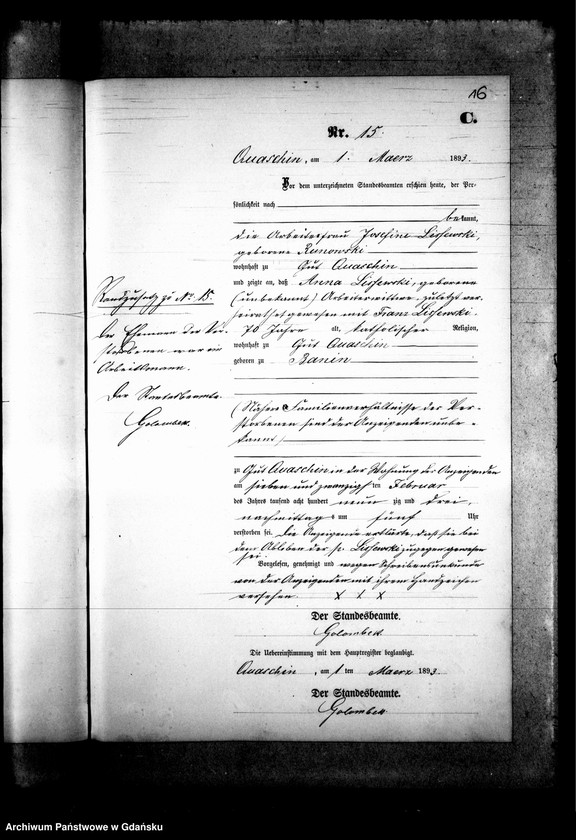 16
C.
Nr. 15.
Quaschin, am 1. Maerz 1893.
Vor dem unterzeichneten Standesbeamten erschien heute, der Per-
sönlichkeit nach
bekannt,
die Arbeiterfrau Josefine Lissewski,
geborene Runowski
wohnhaft zu Gut Quaschin
und zeigte an, daß Anna Lissewski, geborene
(unbekannt) Arbeiterwittwe, zuletzt ver-
heirathet gewesen mit Franz Lissewski.
70 Jahre alt, katholischer Religion,
wohnhaft zu Gut Quaschin
geboren zu Banin
(Nähere Familienverhältnisse der Ver-
storbenen sind der Anzeigenden unbe-
kannt)
zu Gut Quaschin in der Wohnung der Anzeigenden
am sieben und zwanzigsten Februar
des Jahres tausend acht hundert neunzig und drei,
nachmittags um fünf Uhr
verstorben sei. Die Anzeigende erklärte, daß sie bei
dem Ableben der p. Lissewski zugegen gewesen
sei.
Vorgelesen, genehmigt und wegen Schreibensunkunde
von der Anzeigenden mit ihrem Handzeichen
versehen. X X X
Der Standesbeamte.
Golombek
Die Uebereinstimmung mit dem Hauptregister beglaubigt.
Quaschin, am 1 ten Maerz 1893.
Der Standesbeamte.
Golombek
Randzusatz zu No. 15.
Der Ehemann der Ver-
storbenen war ein
Arbeitsmann.
Der Standesbeamte
Golombek.
Archiwum Państwowe w Gdańsku